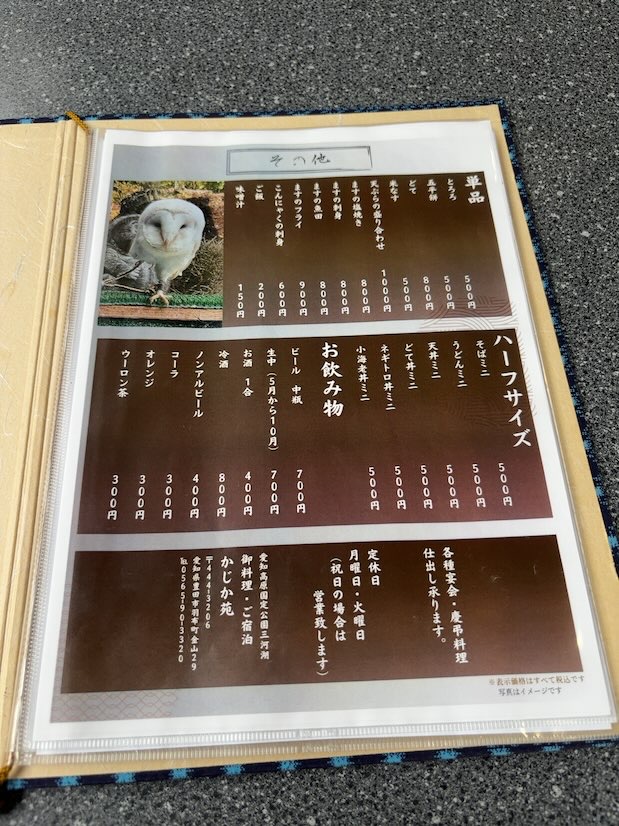 その他
単品
とろろ 500円
五平餅 500円
どて 800円
米なす 500円
天ぷらの盛り合わせ 1000円
ますの塩焼き 800円
ますの刺身 800円
ますの魚田 800円
ますのフライ 900円
こんにゃくの刺身 600円
ご飯 200円
味噌汁 150円
ハーフサイズ
そばミニ 500円
うどんミニ 500円
天丼ミニ 500円
どて丼ミニ 500円
ネギトロ丼ミニ 500円
小海老丼ミニ 500円
お飲み物
ビール 中瓶 700円
生中(5月から10月) 700円
お酒 1合 400円
冷酒 800円
ノンアルビール 400円
コーラ 300円
オレンジ 300円
ウーロン茶 300円
各種宴会・慶弔料理
仕出し承ります。
定休日
月曜日・火曜日
(祝日の場合は
営業致します)
愛知高原国定公園三河湖
御料理・ご宿泊
かじか苑
〒444-3206
愛知県豊田市羽布町金山29
℡0565-90-3320
※表示価格はすべて税込です
写真はイメージです